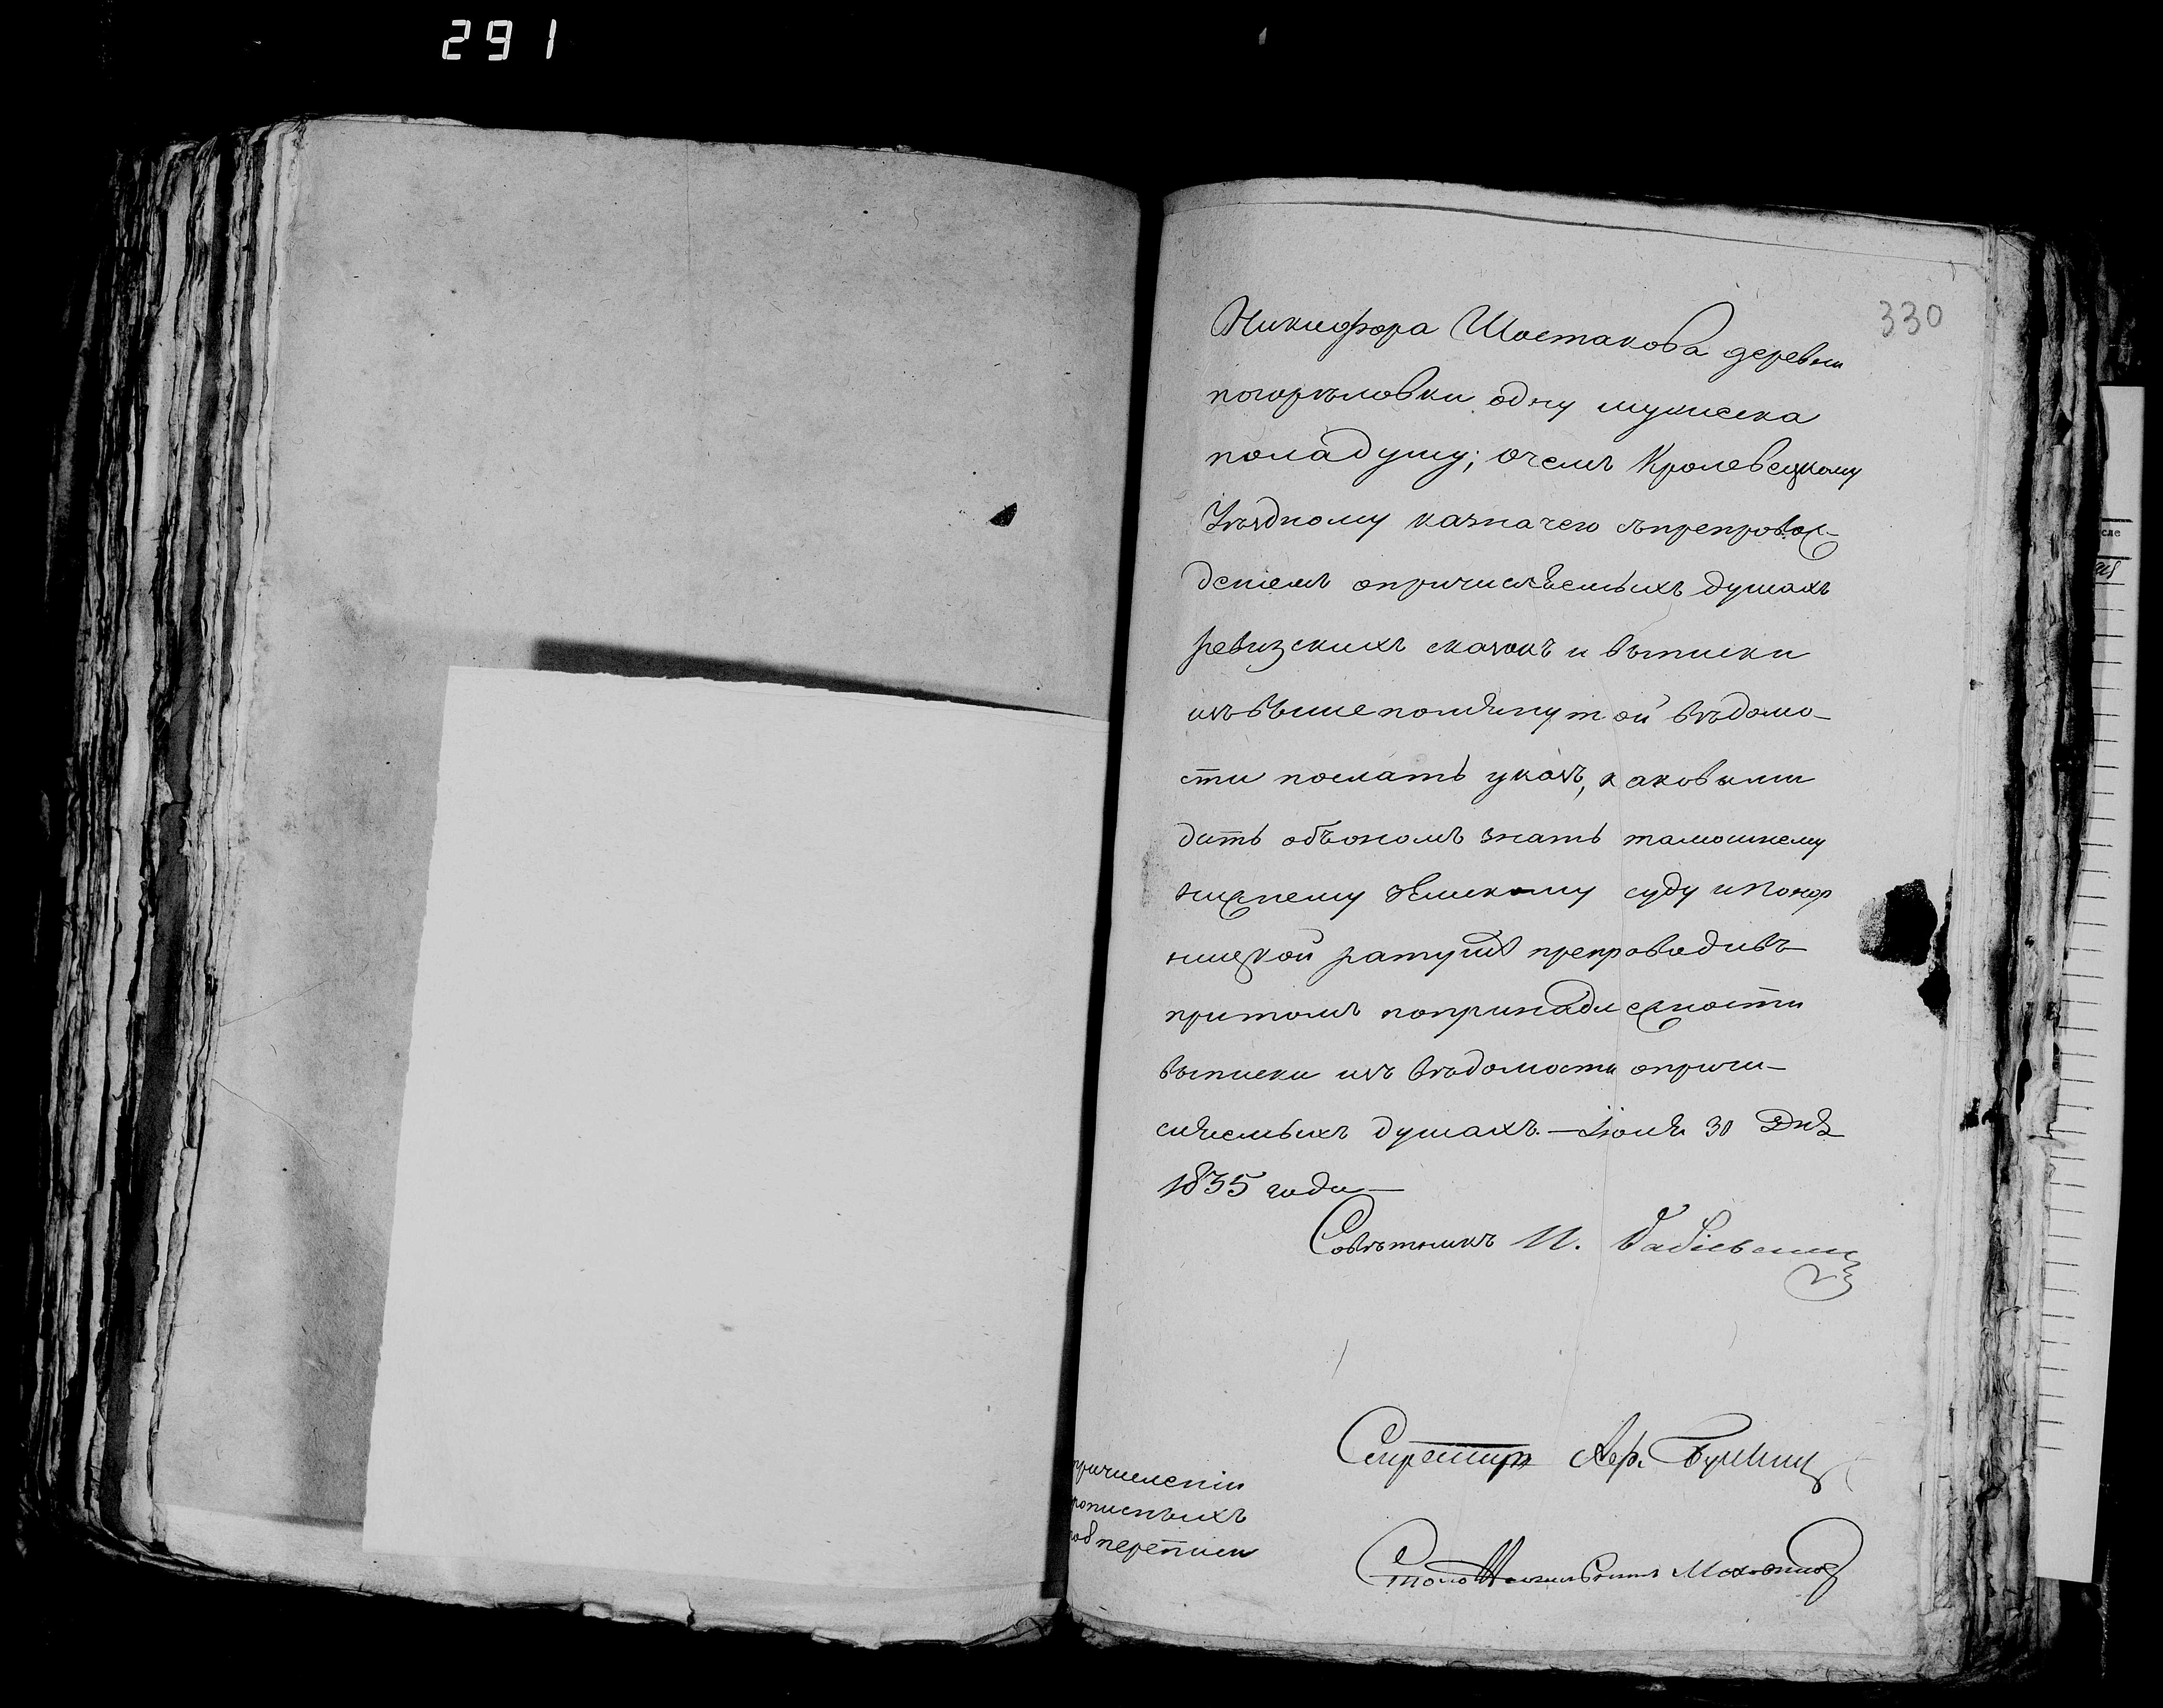 291
330
Никифора Шостакова деревни
погорѣловки одну мужеска
пола душу; о чемъ Кролевецкому
Уѣздному казначею съ препровож-
деніемъ о причисляемыхъ душахъ
ревизскихъ сказокъ и выписки
изъ вышепомянутой вѣдомо-
сти послать указъ, каковыми
дать объ ономъ знать тамошнему
нижнему земскому суду и Понор
ницкой ратуши препроводивъ
притомъ по принадлежности
выписки изъ вѣдомости о причи-
сляемыхъ душахъ. — Іюня 30 Дня
1835 года —
Совѣтникъ И.
Секретарь
Столоначальникъ
причисленіи
прописныхъ
переписи